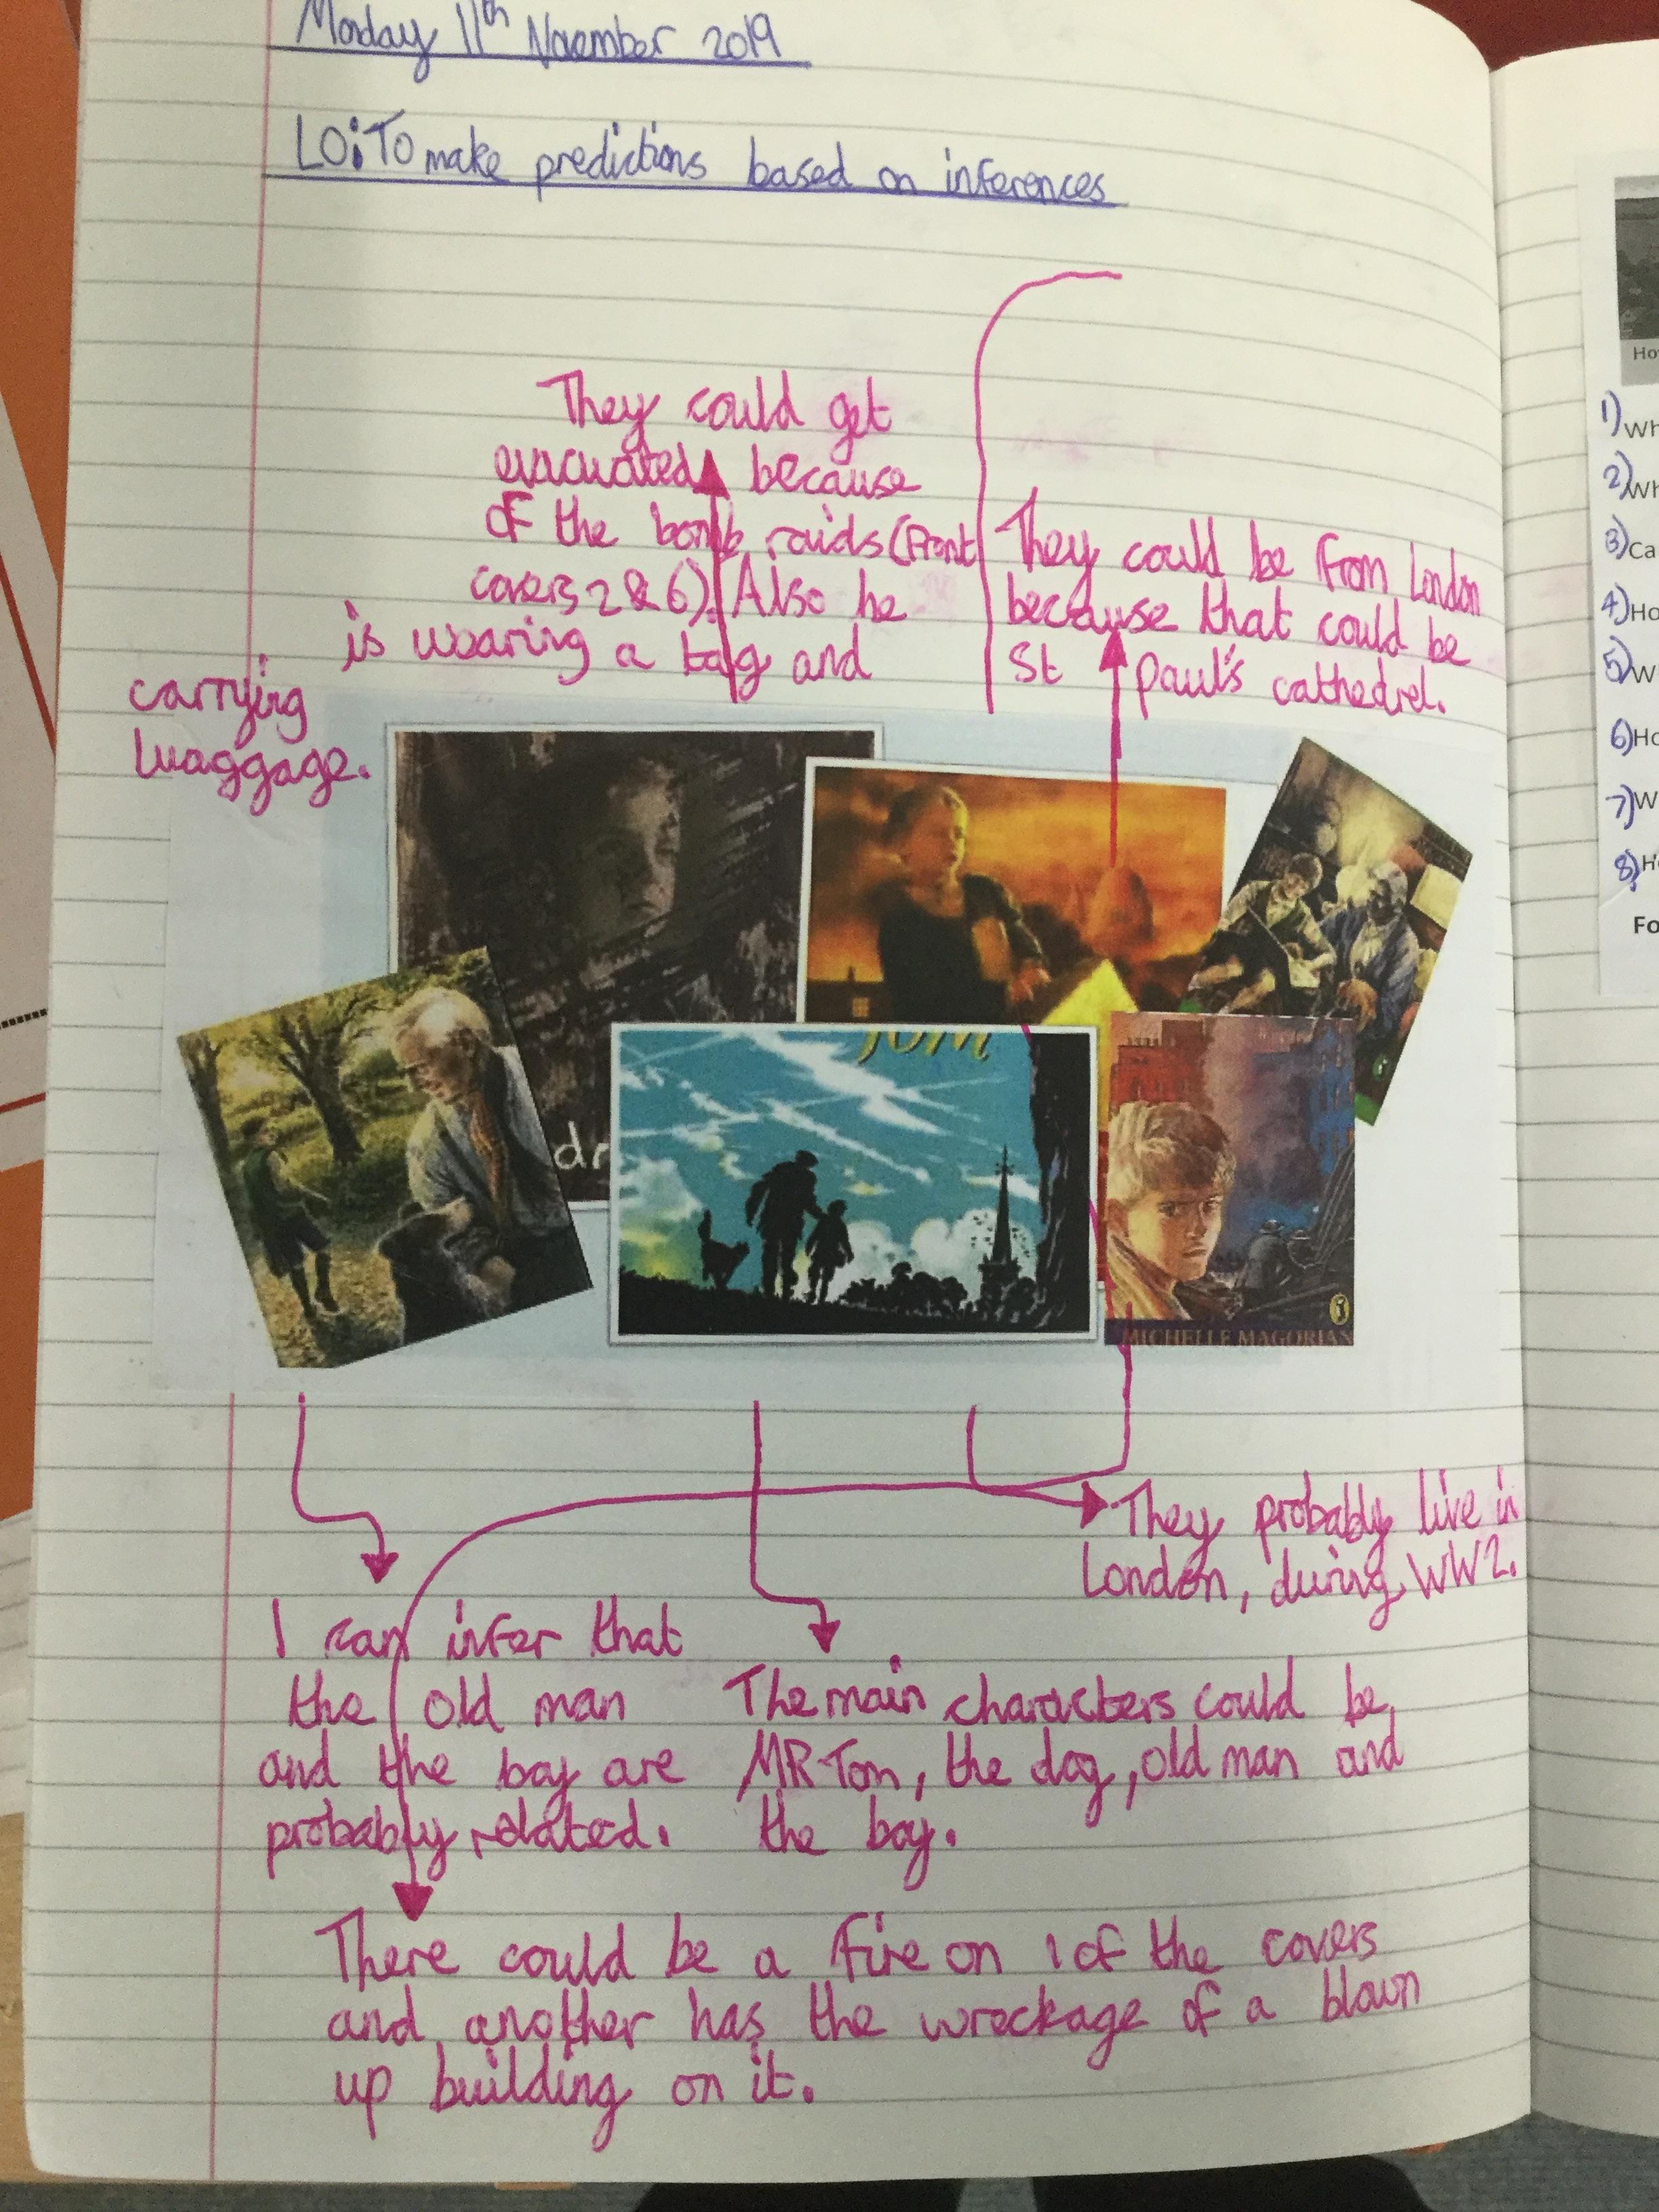 Monday 11th November 2019
LO: To make predictions based on inferences
They could get
evacuated because
of the bomb raids (Front
covers 2 & 6). Also he
is wearing a tag and
carrying
luaggage.
They could be from London
because that could be
St Paul's cathedrel.
dr
TOM
MICHELLE MAGORIAN
They probably live in
London, during WW2.
I can infer that
the old man
and the boy are
probably related.
The main characters could be
MR Tom, the dog, old man and
the boy.
There could be a fire on 1 of the covers
and another has the wreckage of a blown
up building on it.
Ho
1) Wh
2) Wh
3) Ca
4) Ho
5) W
6) Ho
7) W
8) H
Fo